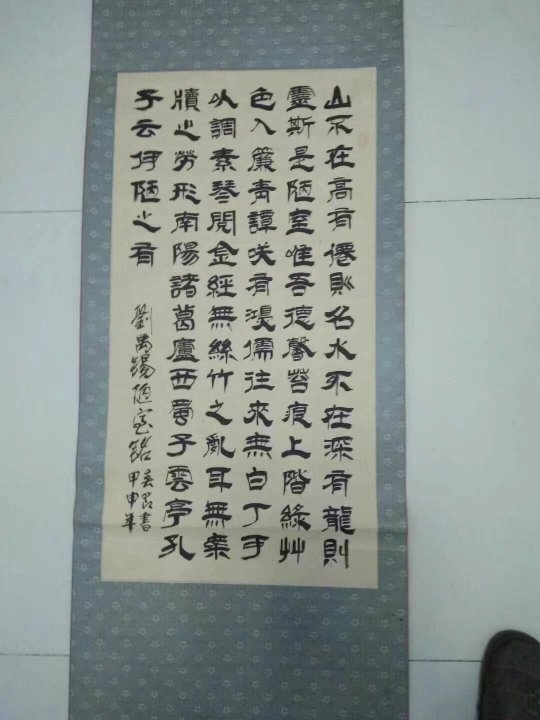 山不在高有僊則名水不在深有龍則
靈斯是陋室唯吾德馨苔痕上階緑艸
色入簾青譚咲有鴻儒往來無白丁可
以調素琴閲金經無絲竹之亂耳無案
牘之勞形南陽諸葛廬西蜀子雲亭孔
子云何陋之有
劉禹錫陋室銘
書
甲申年